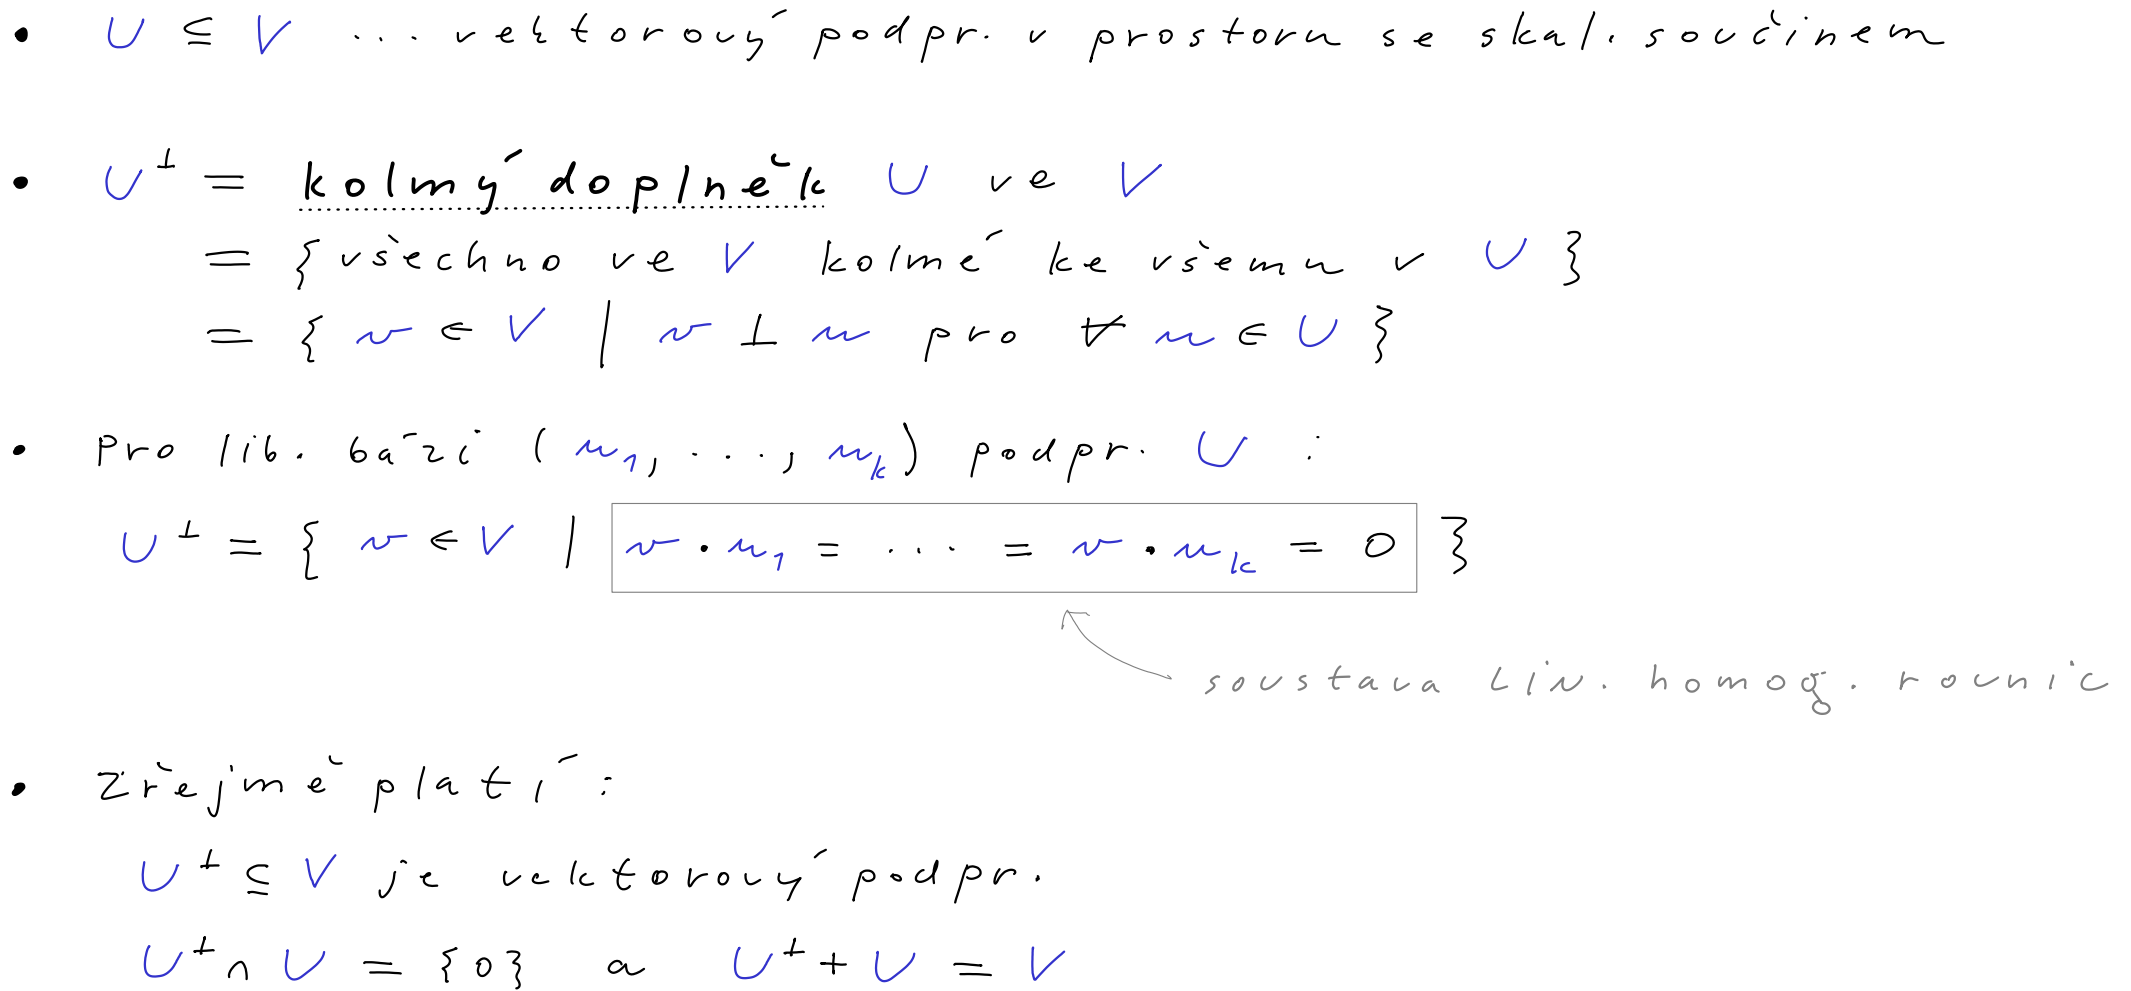 • U ⊆ V ... vektorový podpr. v prostoru se skal. součinem
• U^⊥ = kolmý doplněk U ve V
= { všechno ve V kolmé ke všemu v U }
= { v ∈ V | v ⊥ u pro ∀ u ∈ U }
• Pro lib. bázi (u_1, ..., u_k) podpr. U :
U^⊥ = { v ∈ V | v · u_1 = ... = v · u_k = 0 }
soustava Lin. homog. rovnic
• Zřejmě platí :
U^⊥ ⊆ V je vektorový podpr.
U^⊥ ∩ U = {0} a U^⊥ + U = V